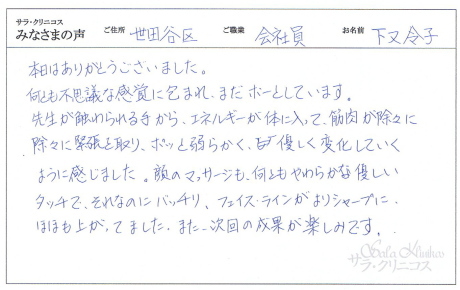 サラ・クリニコス
みなさまの声 ご住所 世田谷区 ご職業 会社員 お名前 下又令子
本日はありがとうございました。
何とも不思議な感覚に包まれ、まだボーとしています。
先生が触わられる手から、エネルギーが体に入って、筋肉が除々に
除々に緊張を取り、ポッと弱らかく、優しく変化していく
ように感じました。顔のマッサージも、何ともやわらかな優しい
タッチで、それなのにバッチリ、フェイス・ラインがよりシャープに、
ほほも上がってました。また、次回の成果が楽しみです。
Sala Klinikos
サラ・クリニコス